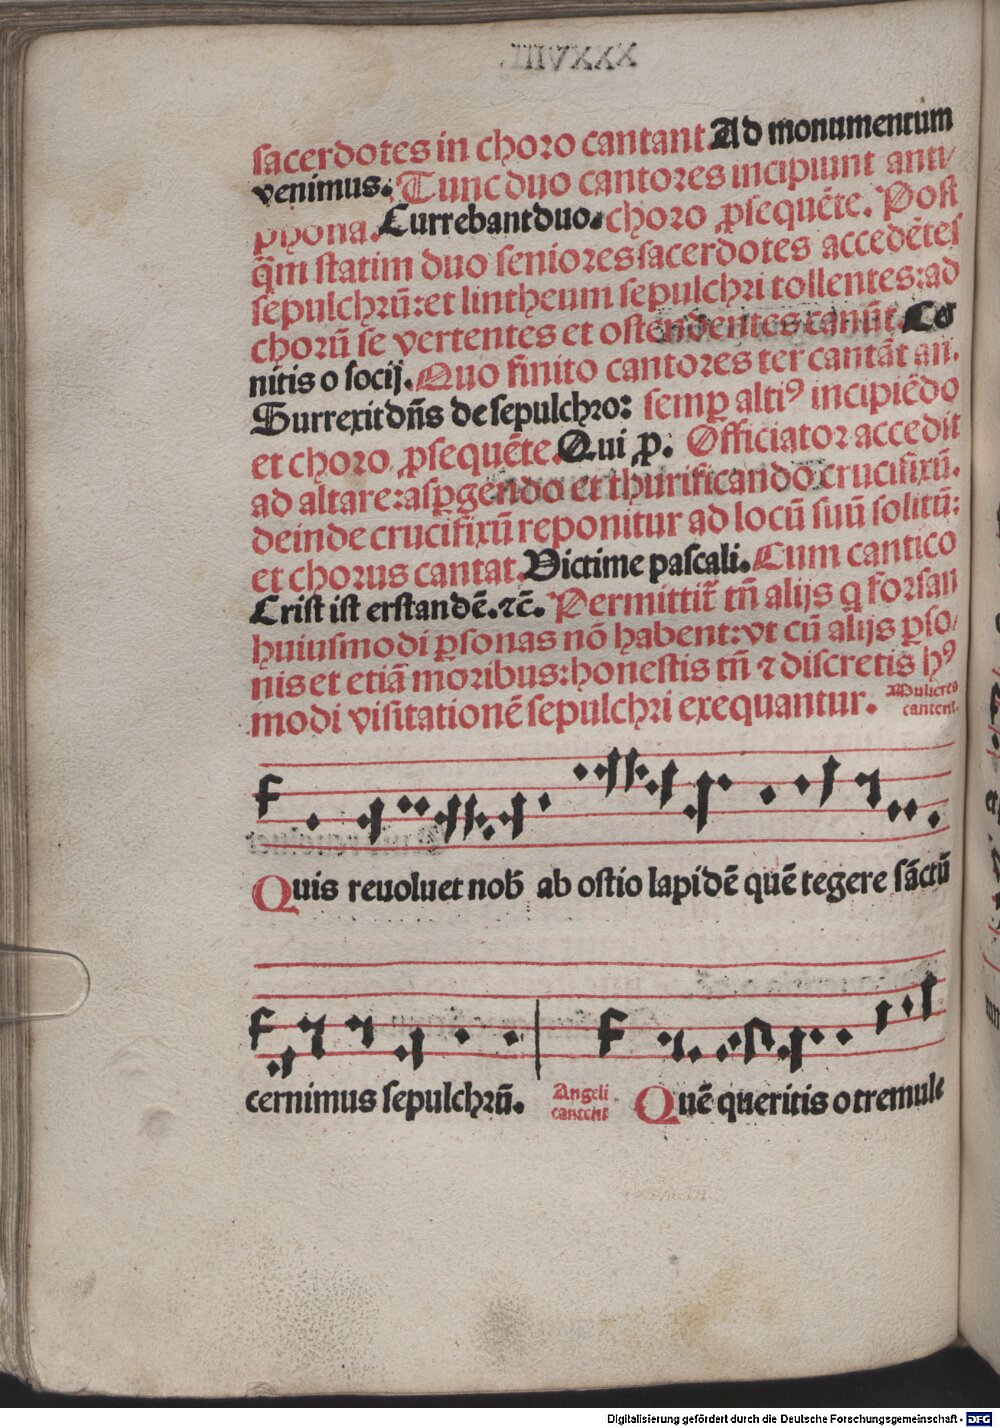 XXXVIII.
sacerdotes in choro cantant Ad monumentum
venimus. Tunc duo cantores incipiunt anti/
phona. Currebant duo. choro ꝓsequēte. Post
q̄m statim duo seniores sacerdotes accedētes
sepulchrū: et lintheum sepulchri tollentes: ad
chorū se vertentes et ostendentes canūt. Cer
nitis o socij. Quo finito cantores ter cantāt an.
Surrexit dn̄s de sepulchro: semꝑ altiꝰ incipiēdo
et choro ꝓsequēte. Qui ꝓ. Officiator accedit
ad altare: asꝑgendo et thurificando crucifixū.
deinde crucifixū reponitur ad locū suū solitū:
et chorus cantat. Victime pascali. Cum cantico
Crist ist erstandē. ⁊c̄. Permittit᷑ tn̄ alijs q forsan
huiusmodi ꝑsonas nō habent: vt cū alijs ꝑso/
nis et etiā moribus: honestis tn̄ ⁊ discretis hꝰ
modi visitationē sepulchri exequantur. Mulieres
cantent.
Quis reuoluet nob̄ ab ostio lapidē quē tegere sāctū
cernimus sepulchrū. Angeli
cantent Quē queritis o tremule
Digitalisierung gefördert durch die Deutsche Forschungsgemeinschaft - DFG